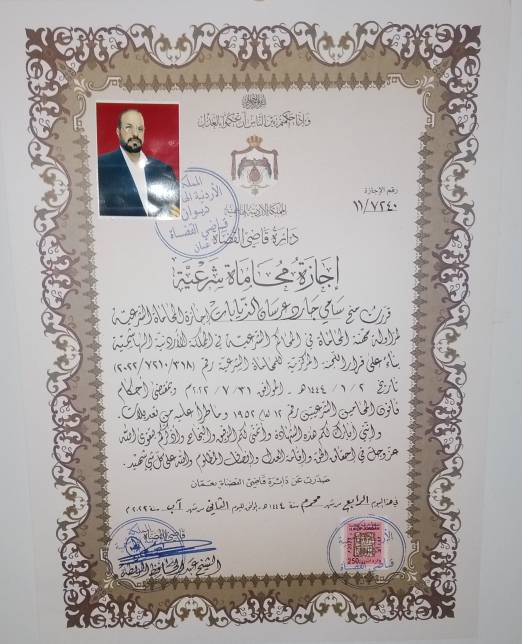 وإذا حكمتم بين الناس أن تحكموا بالعدل
المملكة الأردنية الهاشمية
دائرة قاضي القضاة
رقم الإجازة
١١/٧٢٤٠
المملكة
الأردنية الهاشمية
ديوان
قاضي القضاة
عمان
إجازة محاماة شرعية
قررت منح سامي حامد عرسان الذيابات إجازة المحاماة الشرعية
لمزاولة مهنة المحاماة في المحاكم الشرعية في المملكة الأردنية الهاشمية
بناءً على قرار اللجنة المركزية للمحاماة الشرعية رقم (٢٠٢٢/٧٢١٠/٣١٨)
تاريخ ١٤٤٤/١/٢هـ الموافق ٢٠٢٢/٧/٣١م وبمقتضى أحكام
قانون المحامين الشرعيين رقم ١٢ لعام ١٩٥٢ وما طرأ عليه من تعديلات.
وإنني أبارك لكم هذه الشهادة وأتمنى لكم التوفيق والنجاح وأذكركم بتقوى الله
عز وجل في إحقاق الحق وإقامة العدل وإنصاف المظلوم والله على كل شيء شهيد.
صدرت عن دائرة قاضي القضاة بعمان
في هذا اليوم الرابع من شهر محرم سنة ١٤٤٤هـ الموافق لليوم الثاني من شهر آب سنة ٢٠٢٢م
قاضي القضاة
الشيخ عبد الحافظ الربطة
250
قاضي القضاة